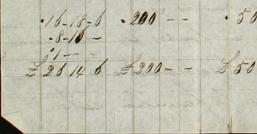 .16-18-6 .200 - - .50
.8-16 -
.1 - -
£26 14 6 £200 - - £50